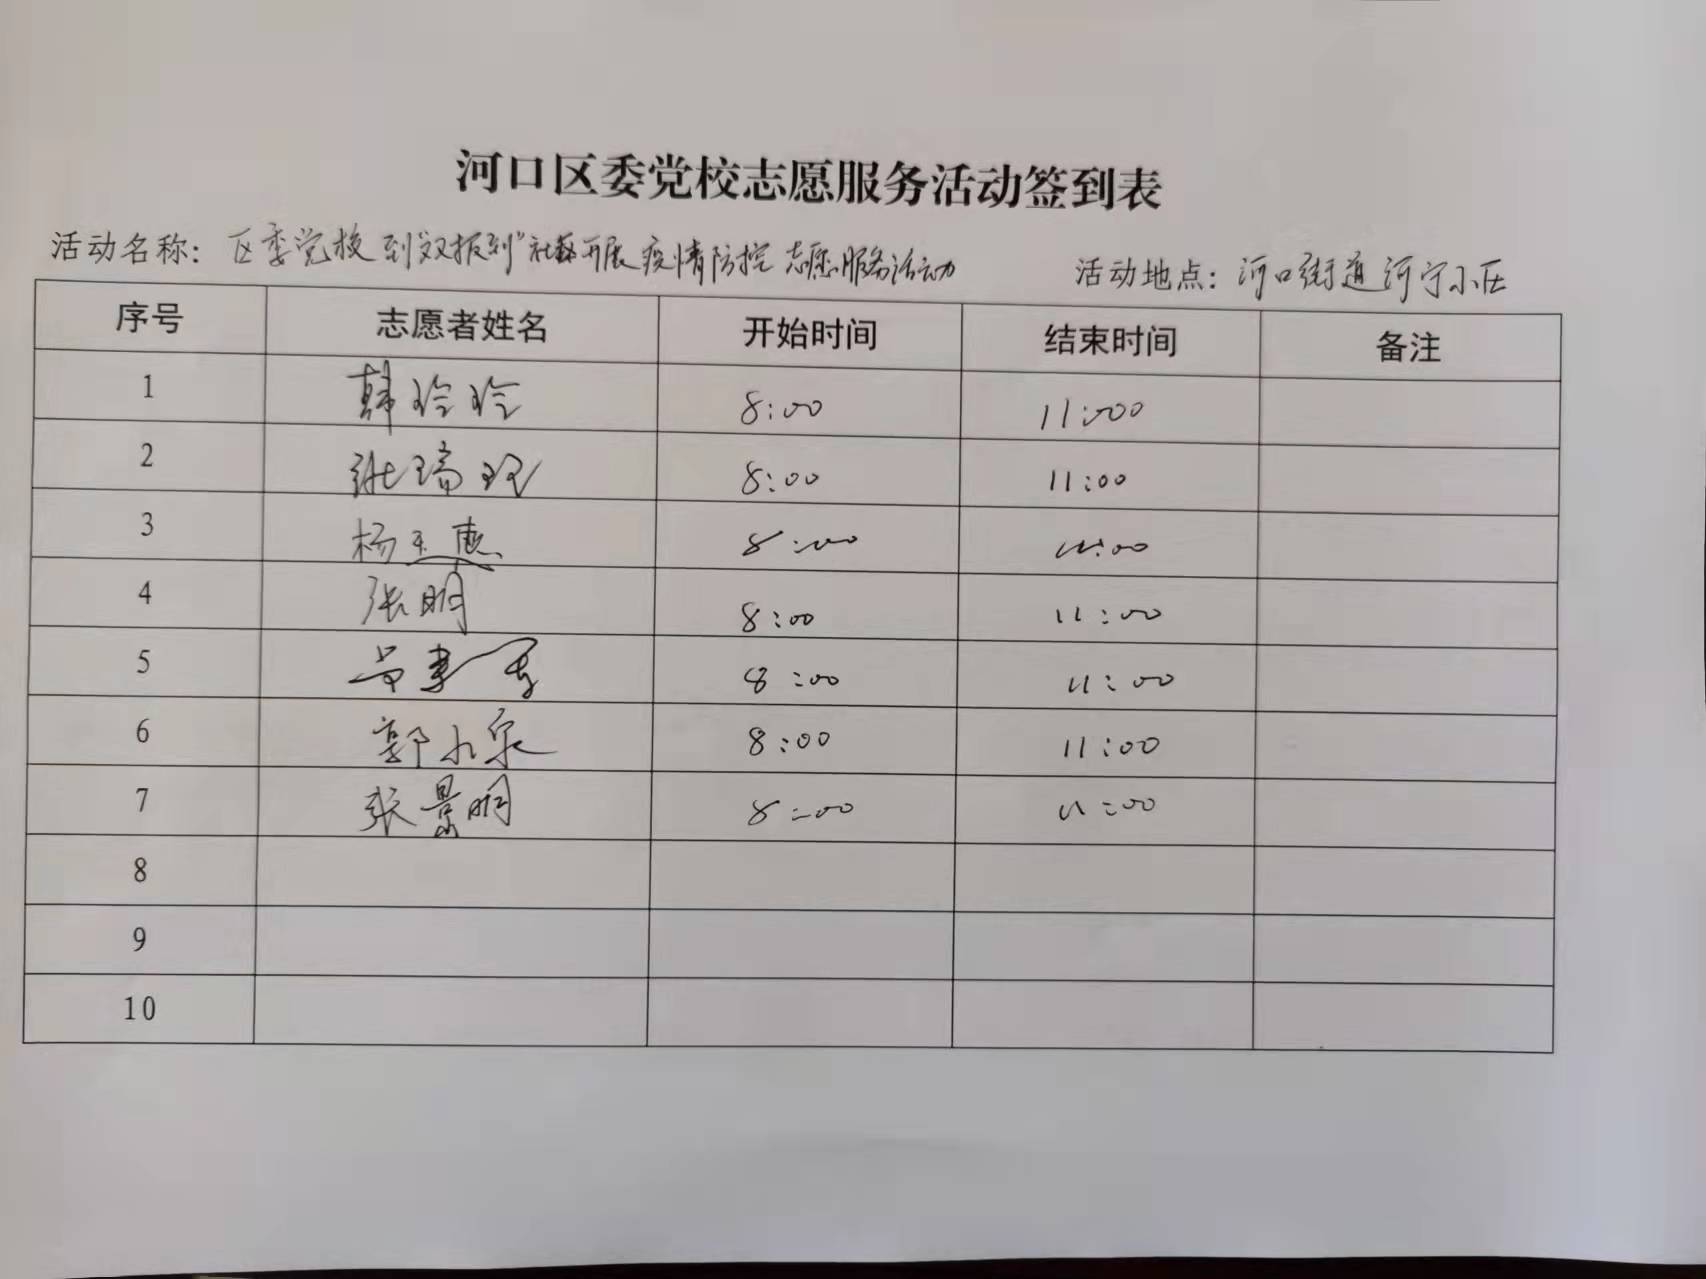 河口区委党校志愿服务活动签到表
活动名称：区委党校到"双报到"社区开展疫情防控志愿服务活动 活动地点：河口街道河宁小区
序号 志愿者姓名 开始时间 结束时间 备注
1 韩玲玲 8:00 11:000
2 张瑞珍 8:00 11:00
3 杨玉惠 8:00 11:00
4 张明 8:00 11:00
5 8:00 11:00
6 郭小泉 8:00 11:00
7 张景明 8:00 11:00
8
9
10